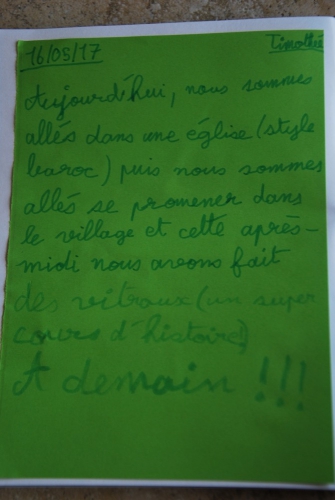 16/05/17 Timothée
Aujourd'hui, nous sommes
allés dans une église (style
baroc) puis nous sommes
allés se promener dans
le village et cette après-
midi nous avons fait
des vitraux (un super
cours d'histoire)
A demain !!!